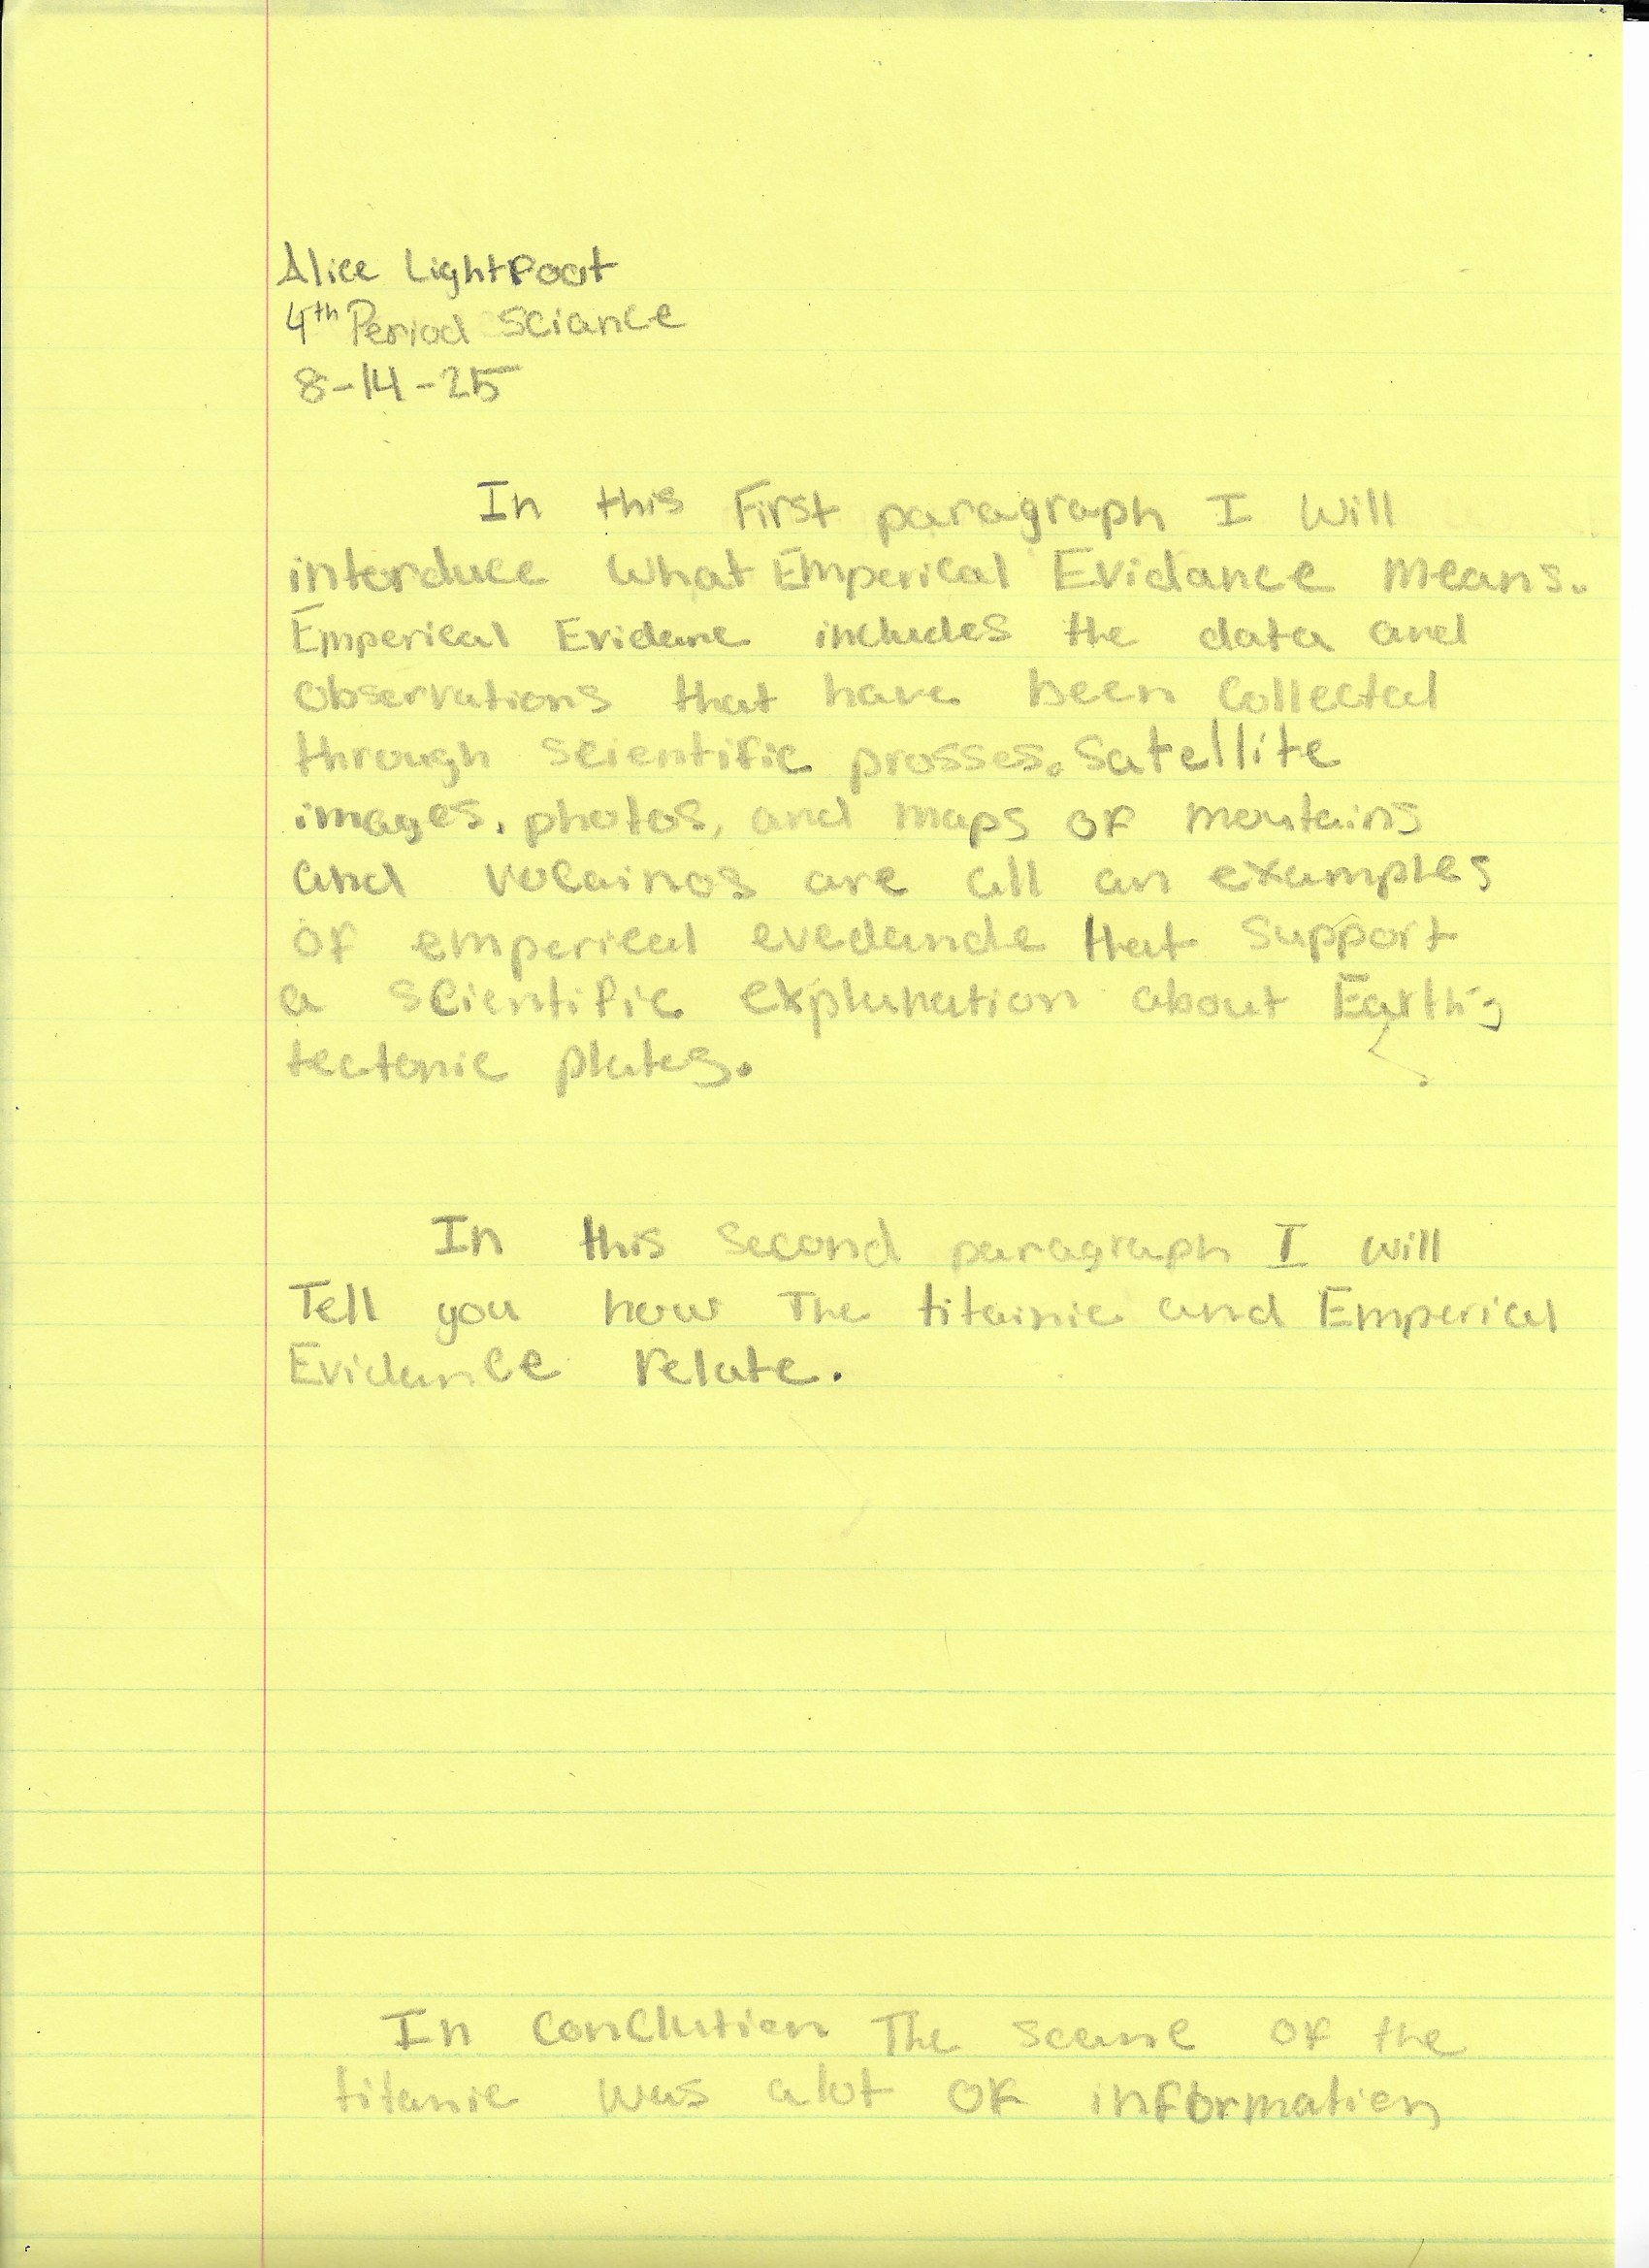 Alice Lightfoot
4th Period Sciance
8-14-25
In this First paragraph I will
interduce what Emperical Evidance means.
Emperical Evidane includes the data and
observations that have been collected
through scientific prosses. Satellite
images, photos, and maps of mountains
and volcainos are all an examples
of emperical evedande that support
a scientific explanation about Earth's
tectonic plates.
In this second paragraph I will
Tell you how The titainic and Emperical
Evidance relate.
In conclution The sceane of the
titanic was alot of information